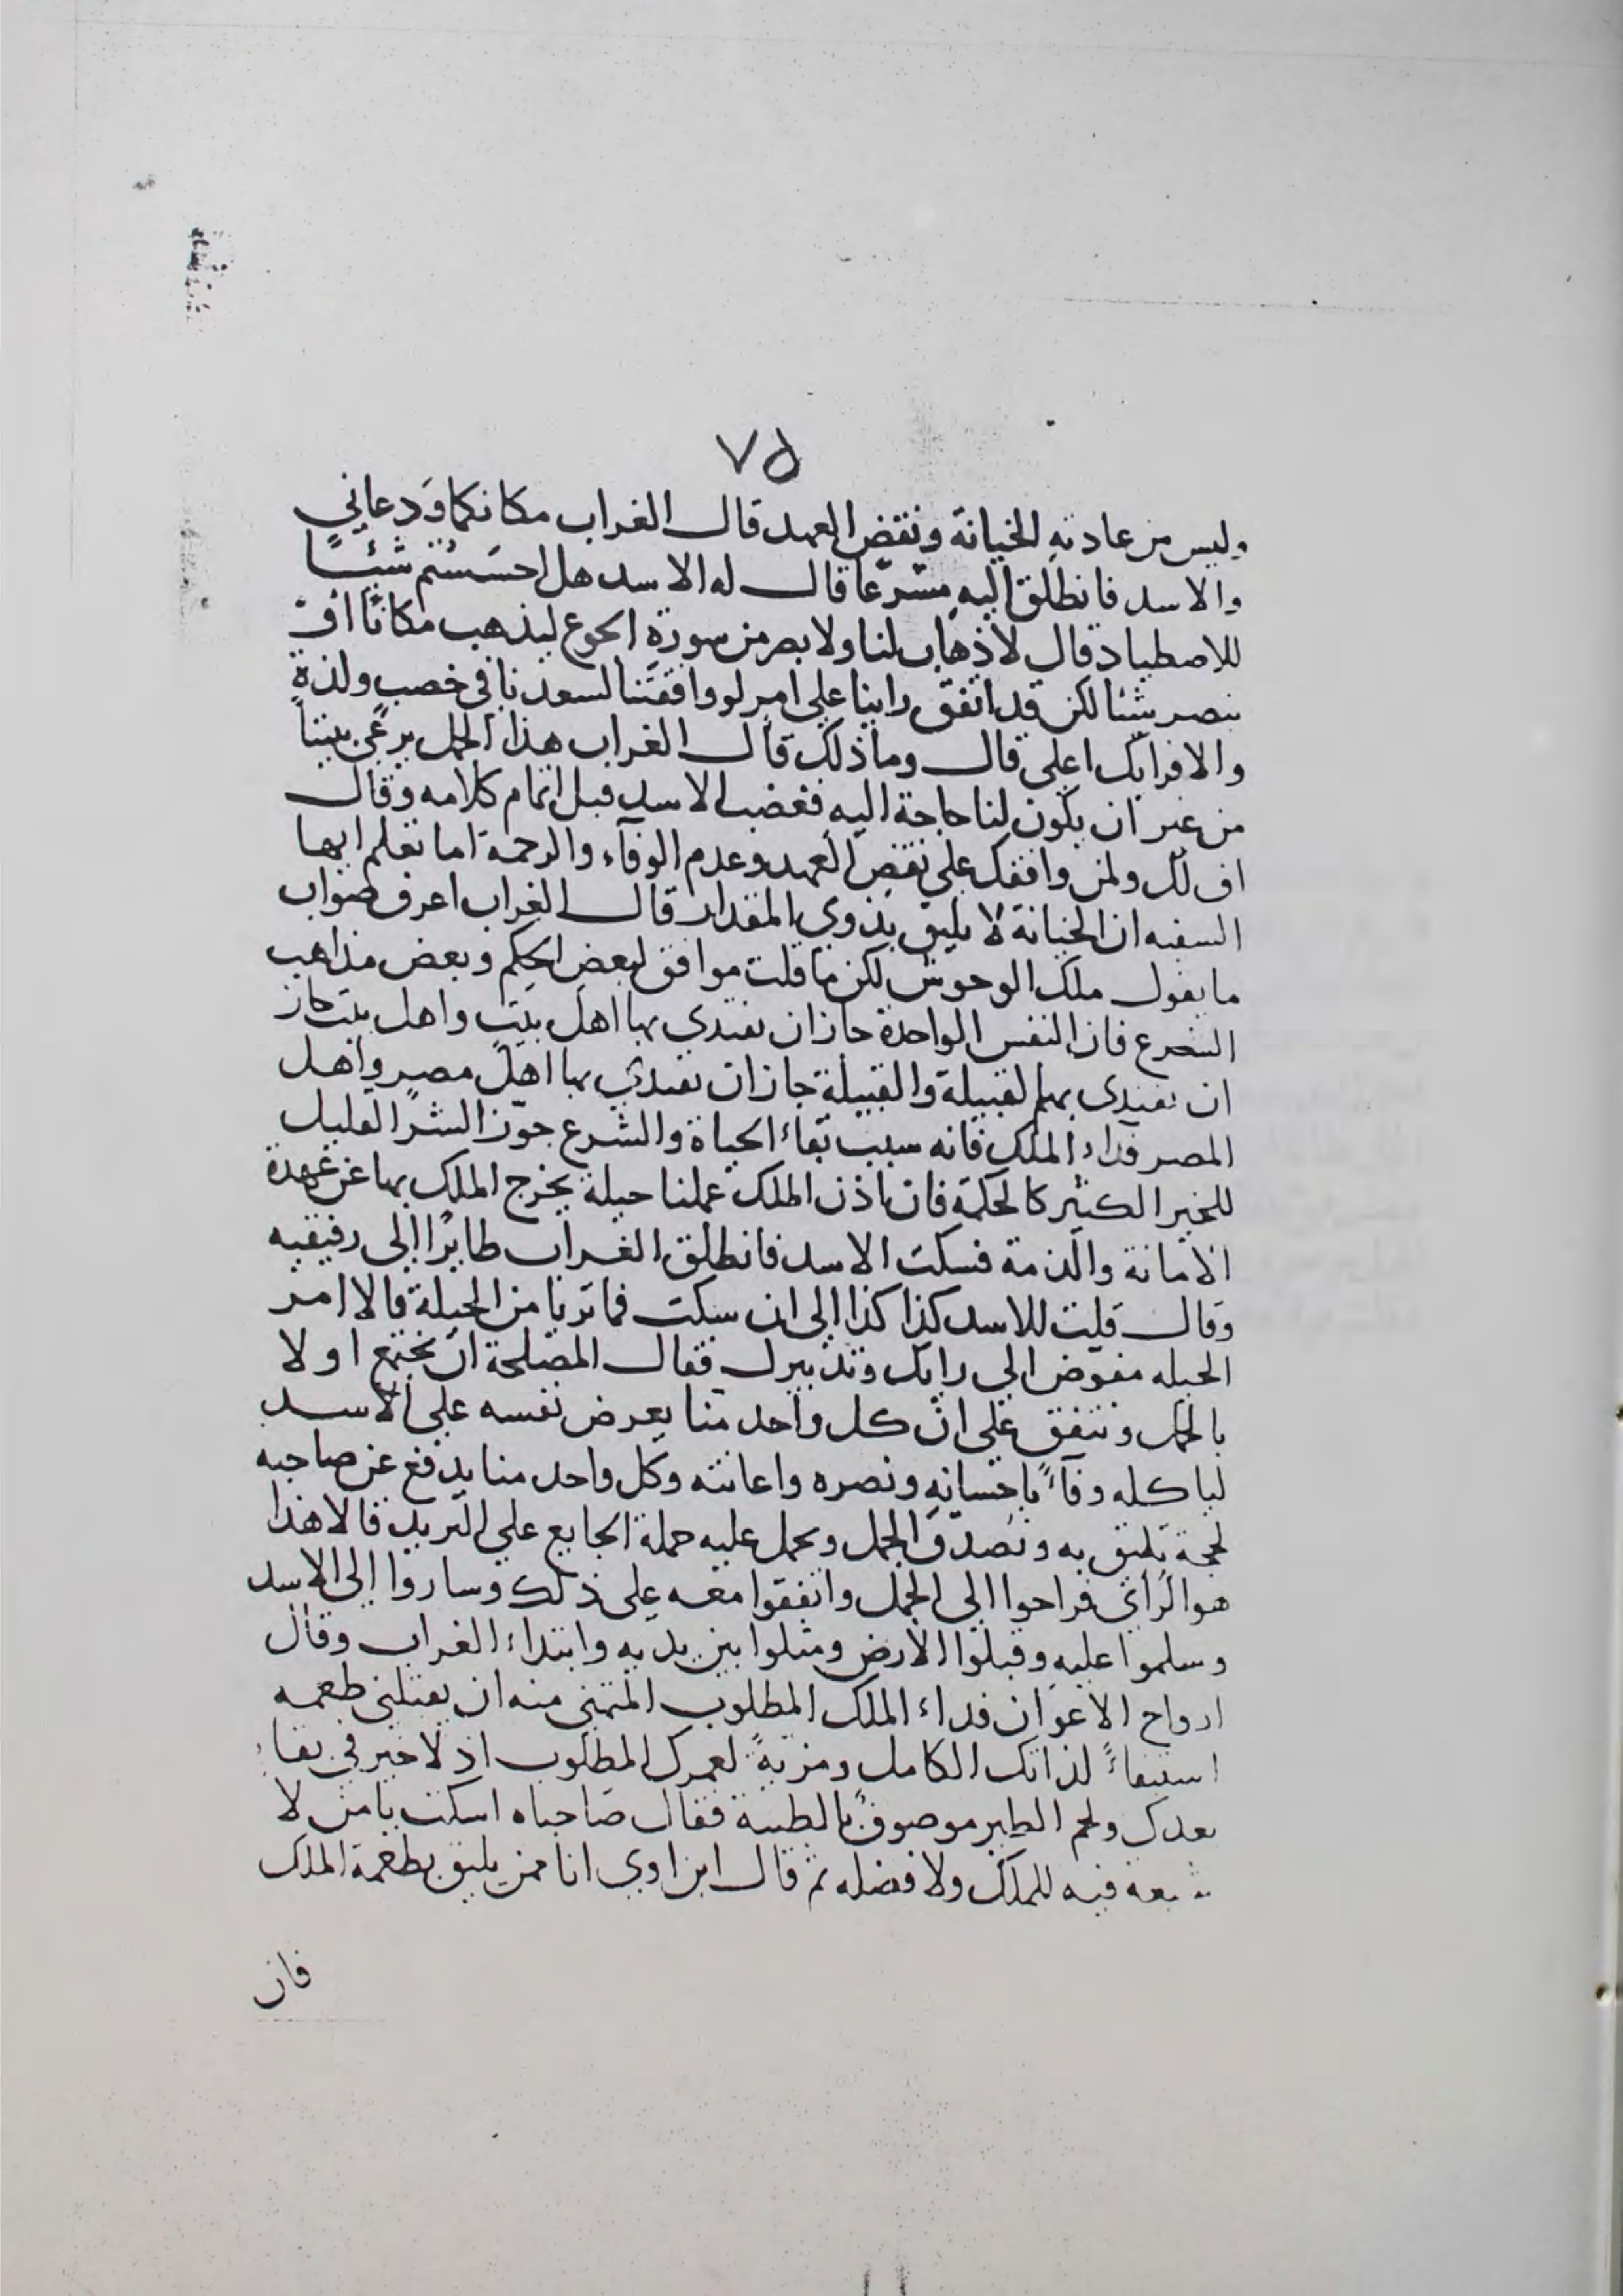 ٧٥
وليس من عادته الخيانة ونقض العهد قال الغراب مكانكما ودعاني
والاسد فانطلق اليه مسرعا قال له الاسد هل احسستم شيئا
للاصطياد قال لا ذهاب لنا ولا بصر من سورة الجوع ليذهب مكانا او
يبصر شيئا لكن قد اتفق راينا على امر لو وافقتنا لسعدنا في خصب ولذة
والا فرايك اعلى قال وما ذلك قال الغراب هذا الجمل يرعى بيننا
من غير ان يكون لنا حاجة اليه فغضب الاسد قبل اتمام كلامه وقال
اف لك ولمن وافقك على نقض العهد وعدم الوفاء والرحمة اما تعلم ايها
السفيه ان الخيانة لا يليق بذوي المقدار قال الغراب اعرف صواب
ما يقول ملك الوحوش لكن ما قلت موافق لبعض الحكم وبعض مذاهب
الشرع فان النفس الواحدة جاز ان يفتدي بها اهل بيت واهل بيت جاز
ان يفتدى بهم القبيلة والقبيلة جاز ان يفتدي بها اهل مصر واهل
المصر فداء الملك فانه سبب بقاء الحياة والشرع جوز الشر القليل
للخير الكثير كالحكمة فان ياذن الملك عملنا حيلة يخرج الملك بها عن عهدة
الامانة والذمة فسكت الاسد فانطلق الغراب طايرا الى رفيقيه
وقال قلت للاسد كذا كذا الى ان سكت فما تريا من الحيلة قالا امر
الحيله مفوض الى رايك وتدبيرك فقال المصلحة ان نجتمع اولا
بالجمل ونتفق على ان كل واحد منا يعرض نفسه على الاسد
لياكله وفاء باحسانه ونصره واعانته وكل واحد منا يدفع عن صاحبه
لحجة تليق به ونصدق الجمل ويحمل عليه حملة الجايع على الثريد قالا هذا
هو الرأي فراحوا الى الجمل واتفقوا معه على ذلك وساروا الى الاسد
وسلموا عليه وقبلوا الارض ومثلوا بين يديه وابتداء الغراب وقال
ارواح الاعوان فداء الملك المطلوب المتمني منه ان يقتلني طعمه
استبقاء لذاتك الكامل ومزية لعمرك المطلوب اذ لا خير في بقاء
بعدك ولحم الطير موصوف بالطيبة فقال صاحباه اسكت يا من لا
شبعه فيه للملك ولا فضله ثم قال ابن اوي انا ممن يليق بطعمة الملك
فان